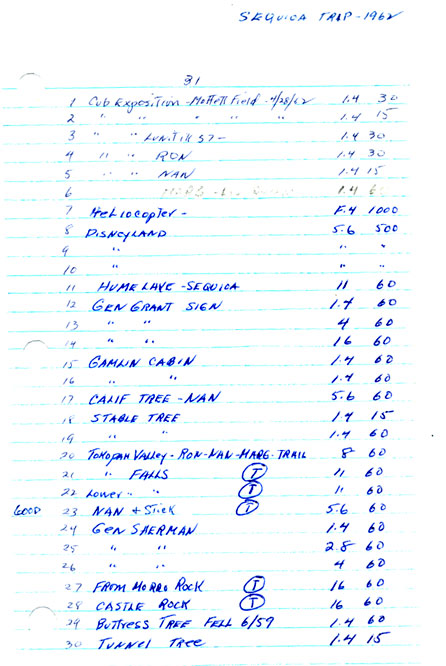 SEQUOIA TRIP - 1962
31
1 Cub Exposition - Moffett Field - 4/28/62 1.4 30
2 " " " " " 1.4 15
3 " " 57 - 1.4 30
4 " " RON 1.4 30
5 " " NAN 1.4 15
6 MARG 1.4 60
7 HELIOCOPTER - F.4 1000
8 DISNEYLAND 5.6 500
9 " " "
10 " " "
11 HUME LAKE - SEQUOIA 11 60
12 GEN GRANT SIGN 1.4 60
13 " " 4 60
14 " " 16 60
15 GAMLIN CABIN 1.4 60
16 " " 1.4 60
17 CALIF TREE - NAN 5.6 60
18 STABLE TREE 1.4 15
19 " " 1.4 60
20 Tokopah Valley - RON - NAN - MARG - TRAIL 8 60
21 " FALLS T 11 60
22 Lower " " T 11 60
GOOD 23 NAN + Stick T 5.6 60
24 GEN SHERMAN 1.4 60
25 " " 2.8 60
26 " " 4 60
27 FROM MORRO ROCK T 16 60
28 CASTLE ROCK T 16 60
29 Buttress TREE FELL 6/59 1.4 60
30 TUNNEL TREE 1.4 15